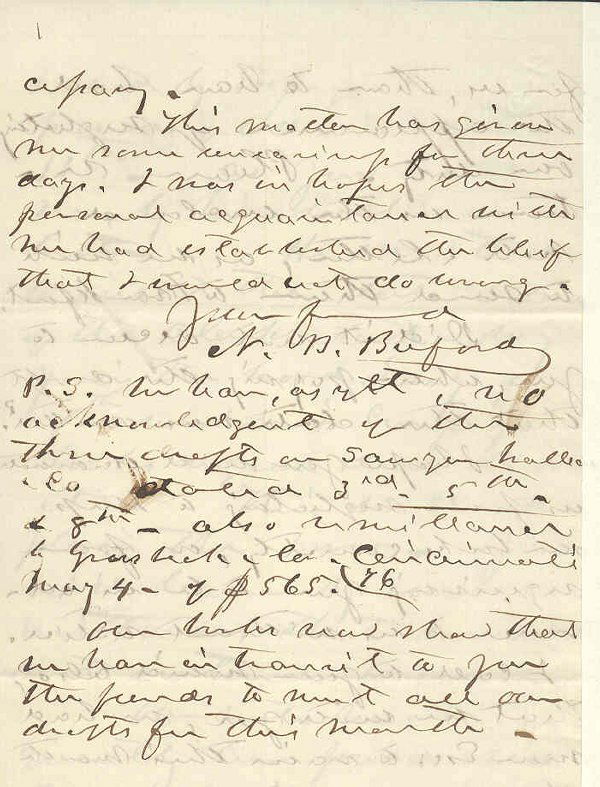 company.
This matter has given
me some uneasiness for three
days. I was in hopes the
personal acquaintance with
me had established the belief
that I would not do wrong.
Your friend
N. B. Buford
P.S. We have, as yet, no
acknowledgent of the
three drafts on Sawyer Wallace
& Co dated 3rd - 5th -
& 8th - also remittance
to & Co. Cincinnati
May 4 - of $565.76
Our books now show that
we have in transit to you
the funds to meet all our
drafts for this month -